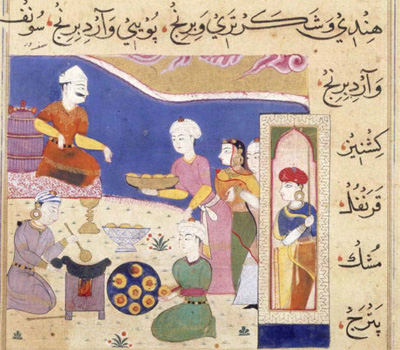 هندي وشكر تري وبرنج پويني وآرد برنج سونف
وآرد برنج
كشنيز
قرنفل
مشك
پترج